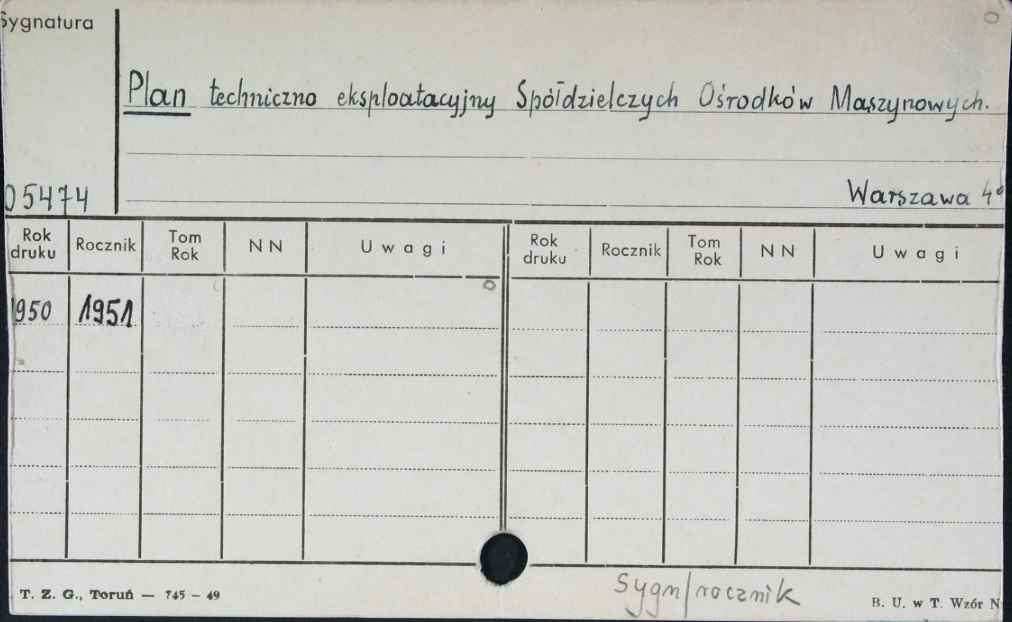 Sygnatura
Plan techniczno eksploatacyjny Spółdzielczych Ośrodków Maszynowych.
05474
Warszawa 4°
Rok druku Rocznik Tom Rok N N Uwagi Rok druku Rocznik Tom Rok N N Uwagi
1950 1951
Sygn/rocznik
T. Z. G., Toruń — 745 – 49
B. U. w T. Wzór N